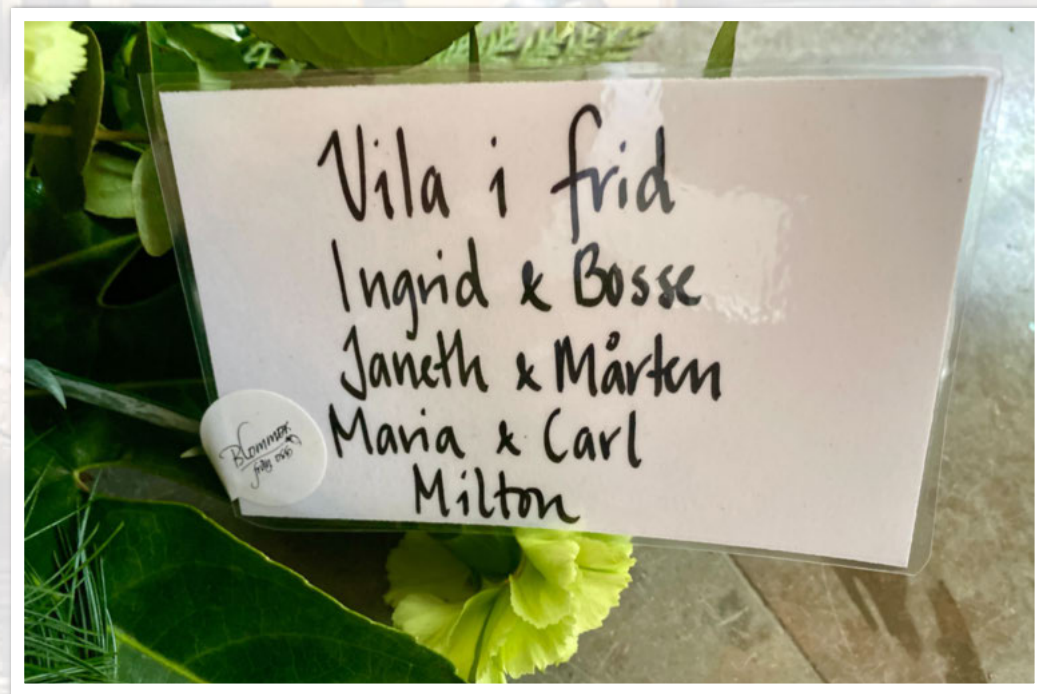 Vila i frid
Ingrid & Bosse
Janeth & Mårten
Maria & Carl
Milton
Blommor
från oss